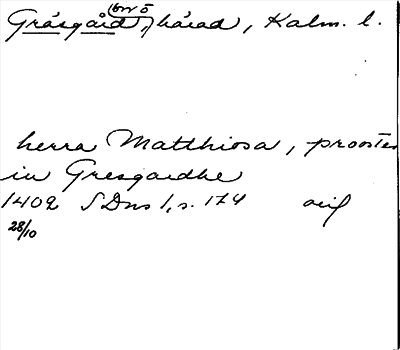 (um ö
Gräsgård, härad, Kalm. l.
herra Matthiosa, proosten
in Gresgardhe
1402 SDns 1, s. 174 avif
28/10